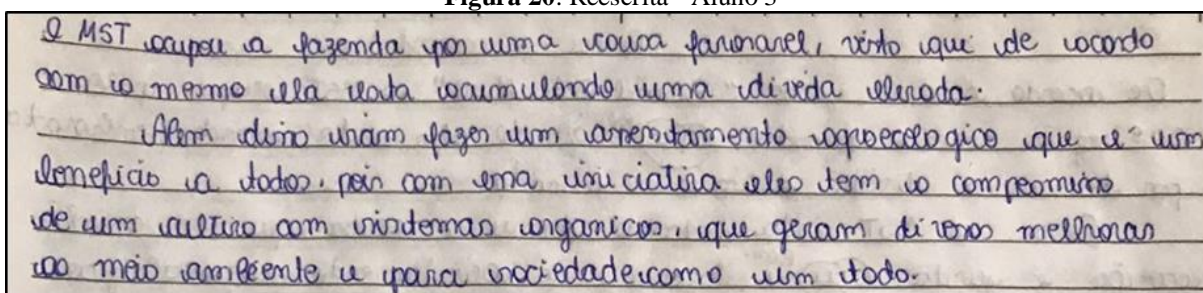 Figura 20: Reescrita - Aluno 3
O MST ocupou a fazenda por uma causa favoravel, visto que de acordo
com o mesmo ela esta acumulando uma divida elevada.
Alem disso iriam fazer um assentamento agroecologico que é um
beneficio a todos, pois com essa iniciativa eles tem o compromisso
de um cultivo com sistemas organicos, que geram diversos melhoras
ao meio ambiente e para sociedade como um todo.